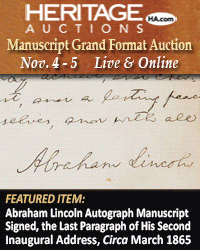 HERITAGE HA.com
AUCTIONS
Manuscript Grand Format Auction
Nov. 4 - 5 Live & Online
t, and a lasting peace
selves, and with all
Abraham Lincoln
FEATURED ITEM:
Abraham Lincoln Autograph Manuscript
Signed, the Last Paragraph of His Second
Inaugural Address, Circa March 1865